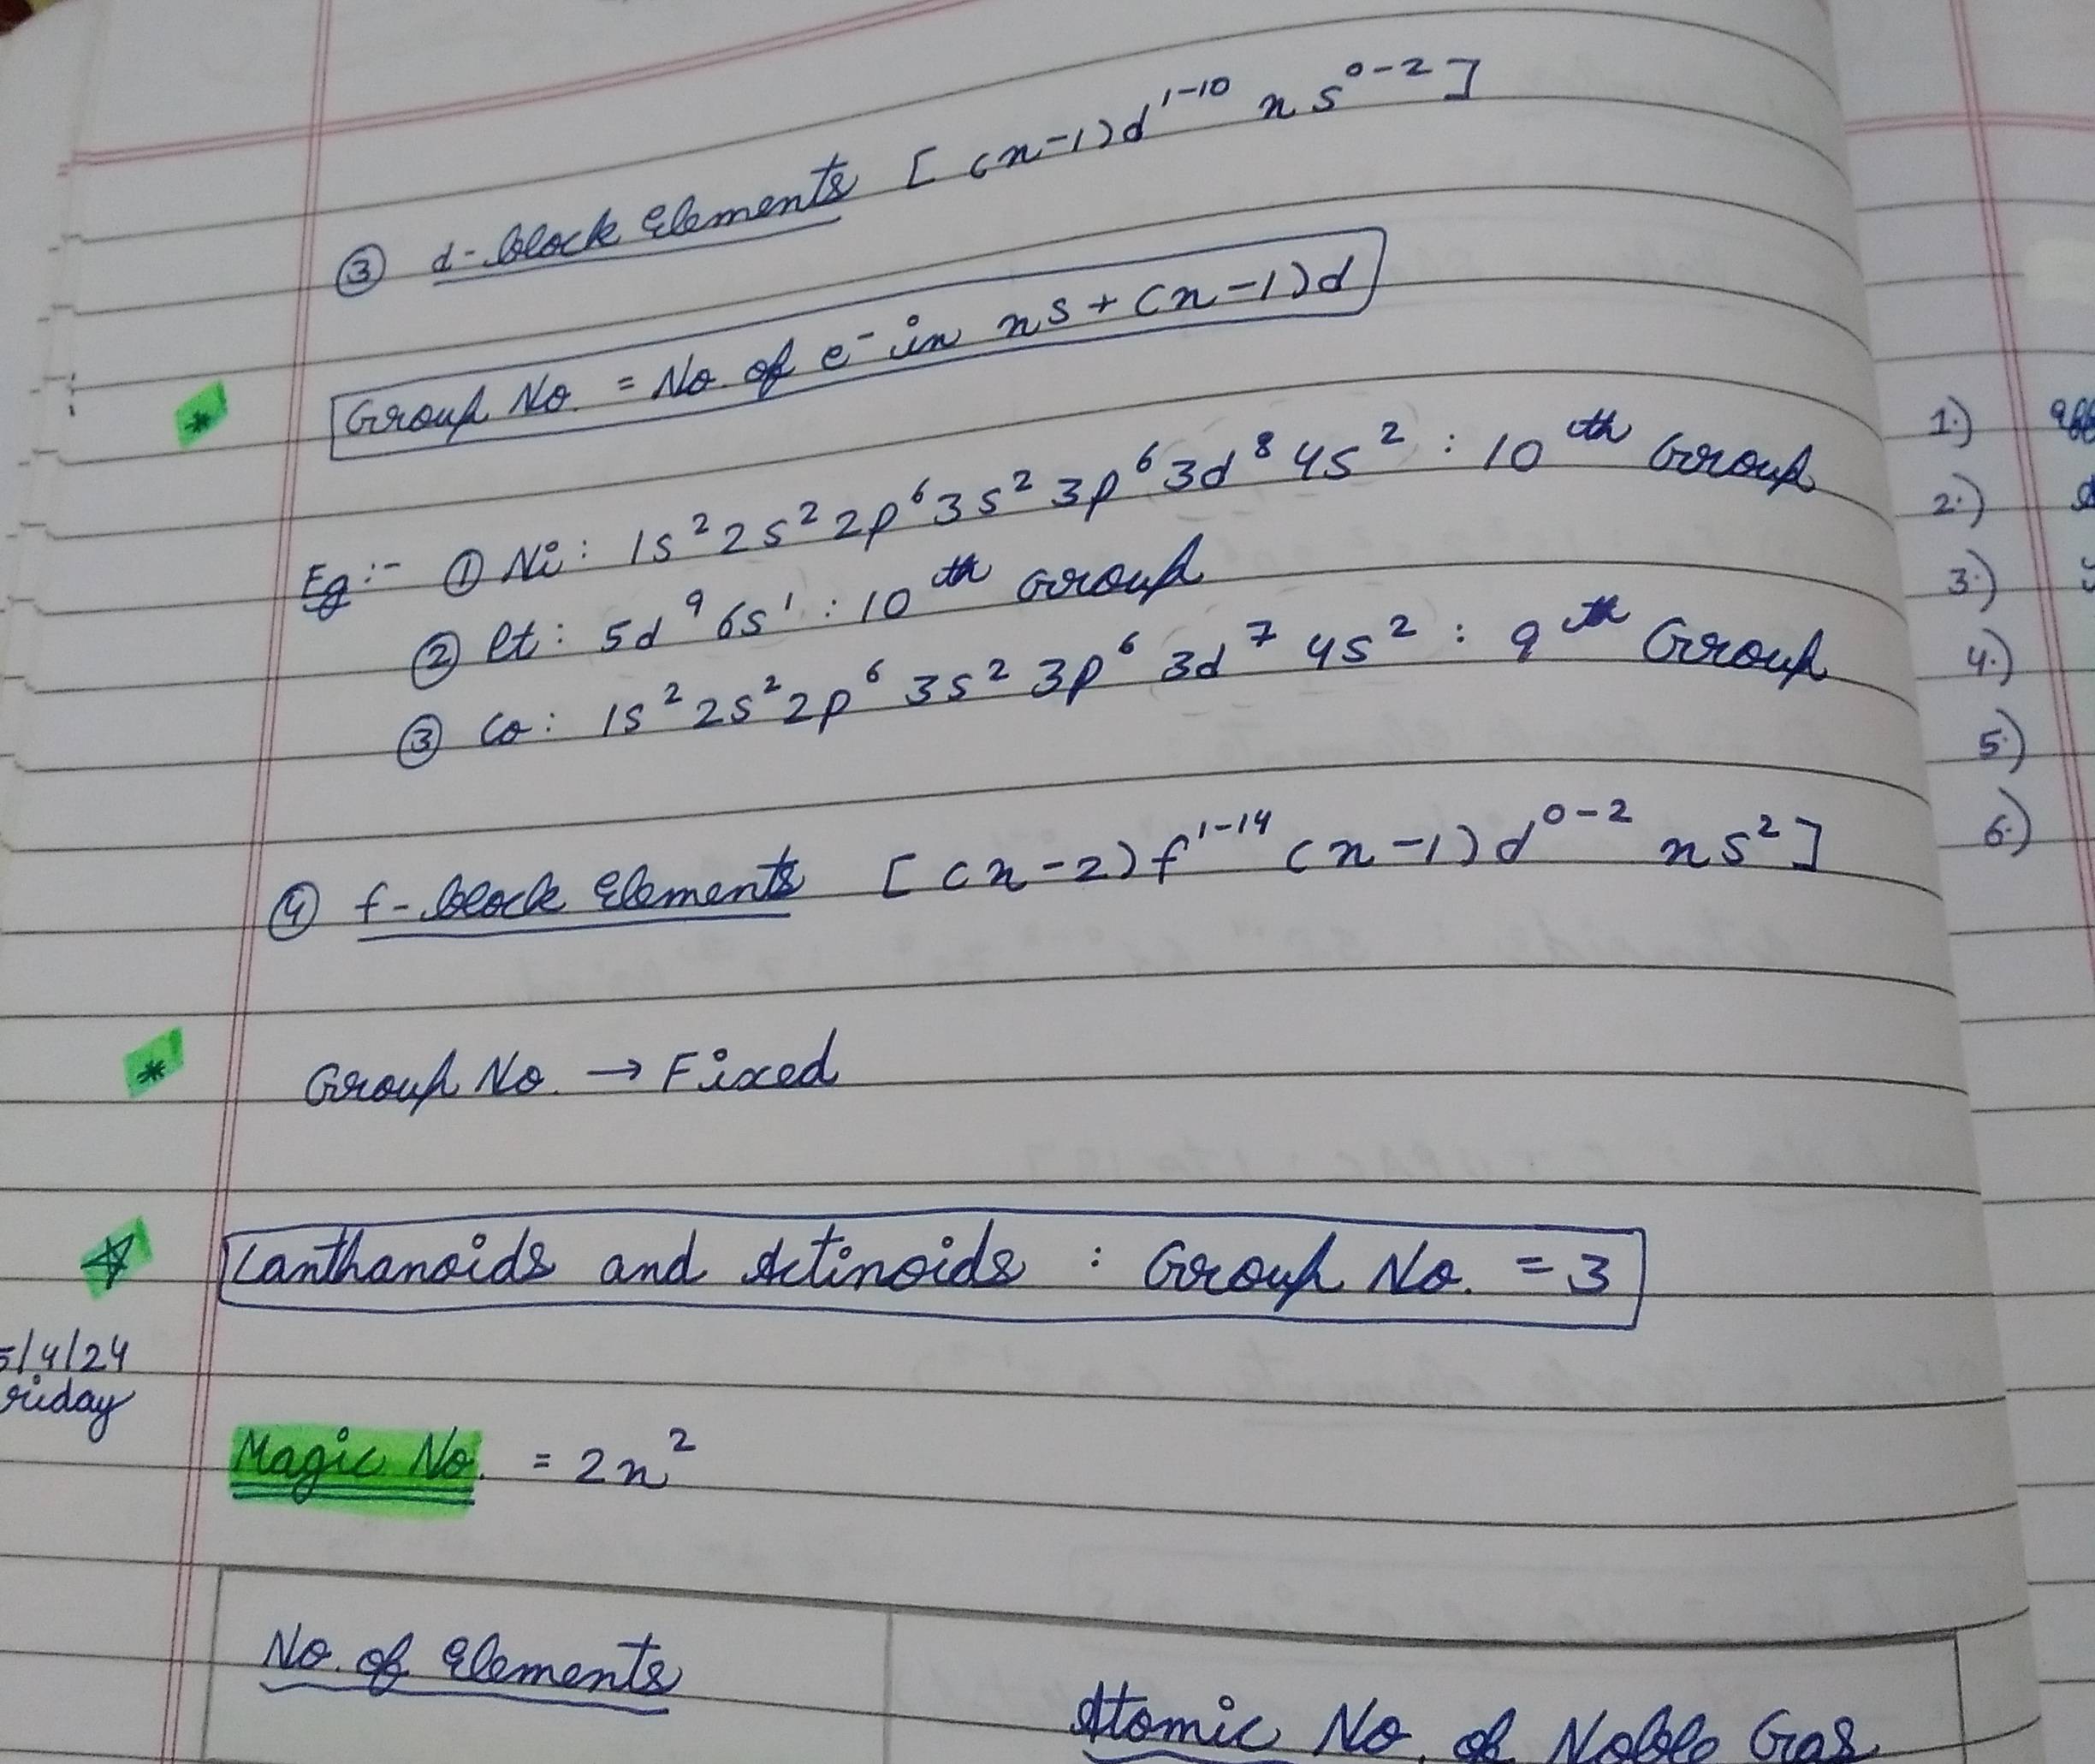 ③ d-block Elements [(n-1)d¹⁻¹⁰ ns⁰⁻²]
* Group No. = No. of e⁻ in ns + (n-1)d
Eg:- ① Ni: 1s² 2s² 2p⁶ 3s² 3p⁶ 3d⁸ 4s² : 10th Group
② Pt: 5d⁹ 6s¹ : 10th Group
③ Co: 1s² 2s² 2p⁶ 3s² 3p⁶ 3d⁷ 4s² : 9th Group
④ f-block Elements [(n-2)f¹⁻¹⁴ (n-1)d⁰⁻² ns²]
* Group No. → Fixed
☆ Lanthanoids and Actinoids : Group No. = 3
5/4/24
riday
Magic No. = 2n²
No. of Elements
Atomic No. of Noble Gas
1.)
2.)
3.)
4.)
5.)
6.)